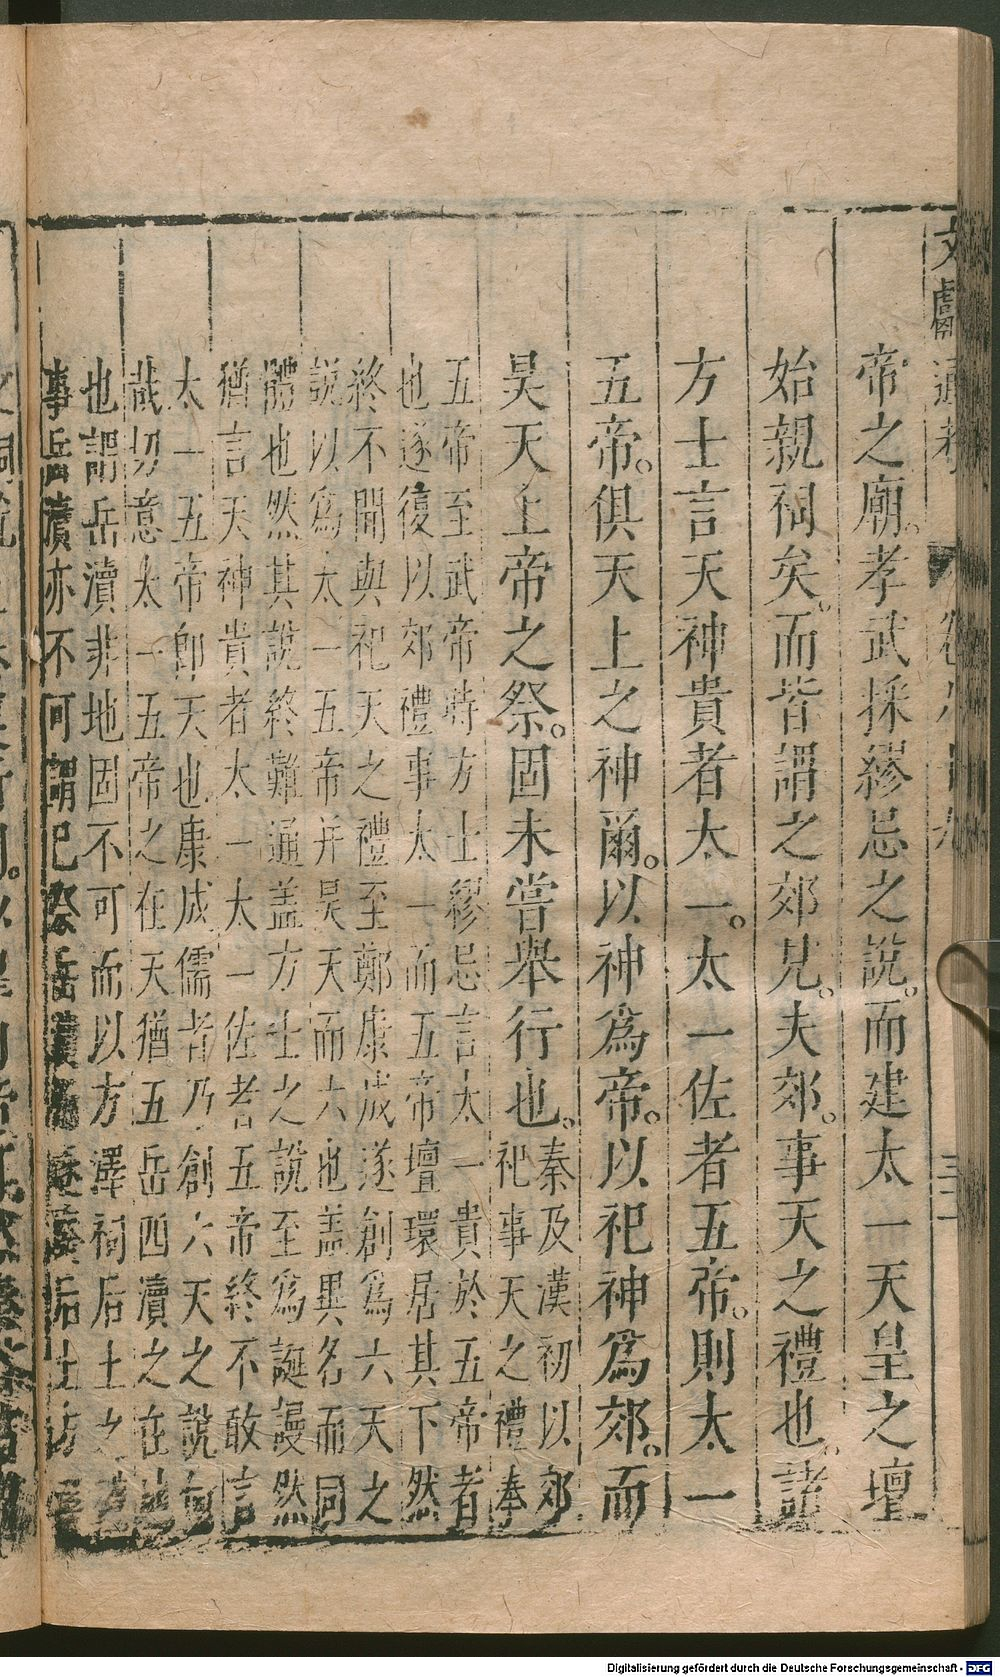 文獻通考
帝之廟。孝武採繆忌之說。而建太一天皇之壇
始親祠矣。而皆謂之郊見。夫郊。事天之禮也。諸
方士言天神貴者太一。太一佐者五帝。則太一
五帝。俱天上之神爾。以神為帝。以祀神為郊。而
昊天上帝之祭。固未嘗舉行也。
秦及漢初以郊
祀事天之禮奉
五帝至武帝時方士繆忌言太一貴於五帝者
也遂復以郊禮事太一而五帝壇環居其下然
終不聞與祀天之禮至鄭康成遂創為六天之
說以為太一五帝并昊天而六也盖異名而同
體也然其說終難通盖方士之說至為誕謾然
猶言天神貴者太一太一佐者五帝終不敢言
太一五帝即天也康成儒者乃創六天之說何
哉切意太一五帝之在天猶五岳四瀆之在地
也謂岳瀆非地固不可而以方澤祠后土之
事岳瀆亦不可謂祀祭岳瀆
Digitalisierung gefördert durch die Deutsche Forschungsgemeinschaft - DFG